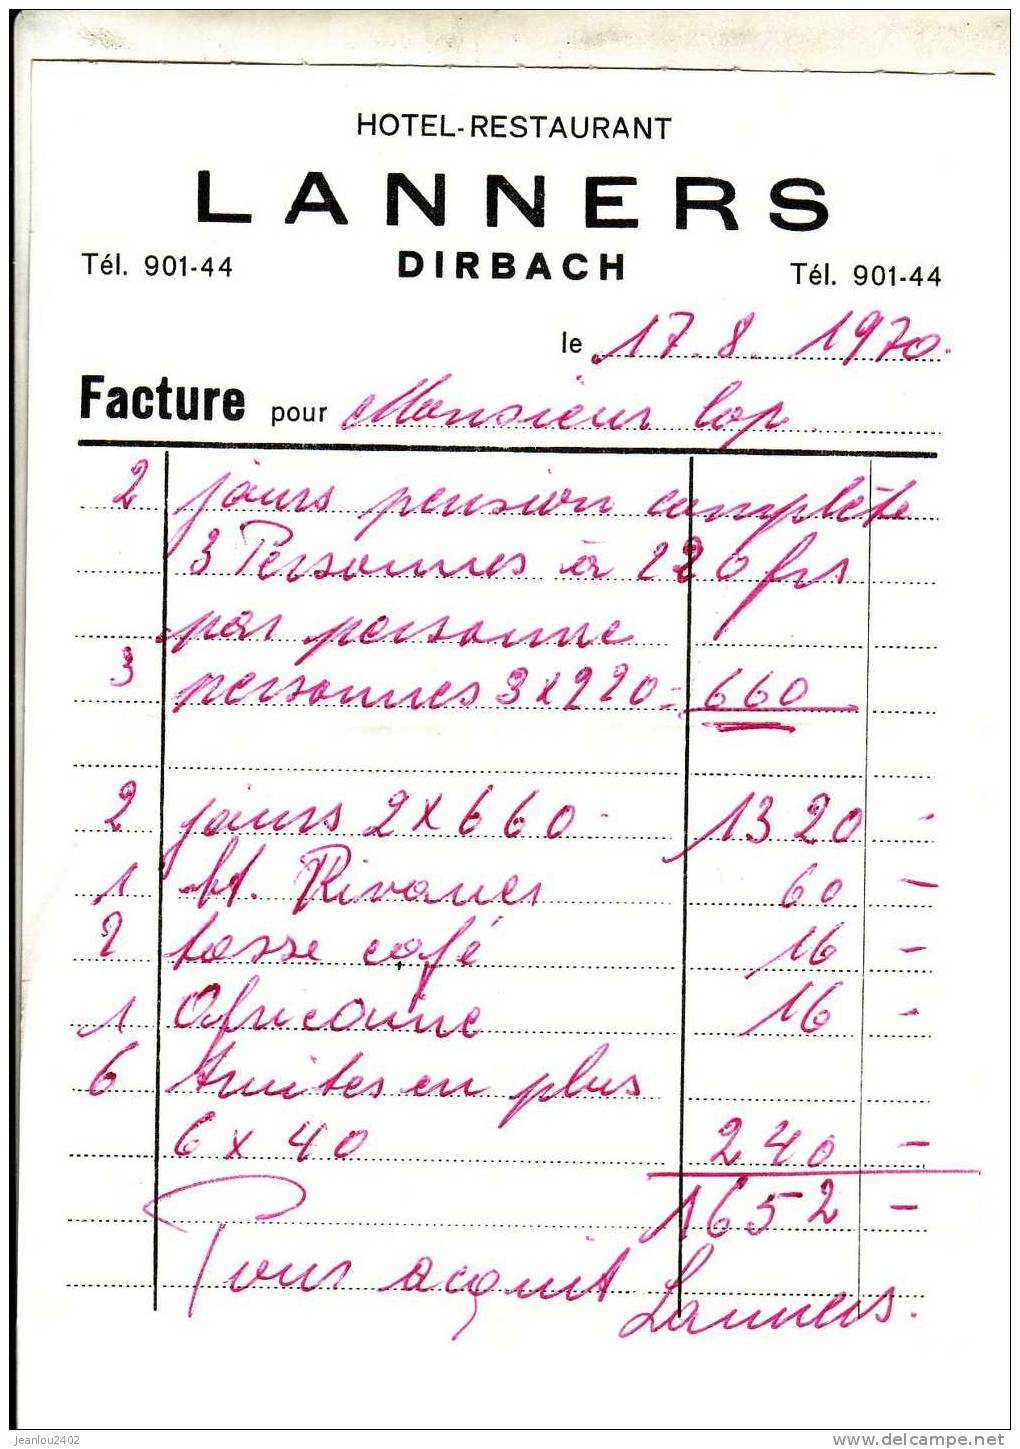 HOTEL-RESTAURANT
LANNERS
Tél. 901-44 DIRBACH Tél. 901-44
le 17. 8. 1970.
Facture pour Monsieur Lop.
2 jours pension complète
3 Personnes à 220 frs
par personne
3 personnes 3 x 220 = 660
2 jours 2 x 660 1320 -
1 bt. Rivaner 60 -
2 tasse café 16 -
1 Africaine 16 -
6 truites en plus
6 x 40 240 -
1652 -
Pour acquit
Lanners.
jeanlou2402
www.delcampe.net